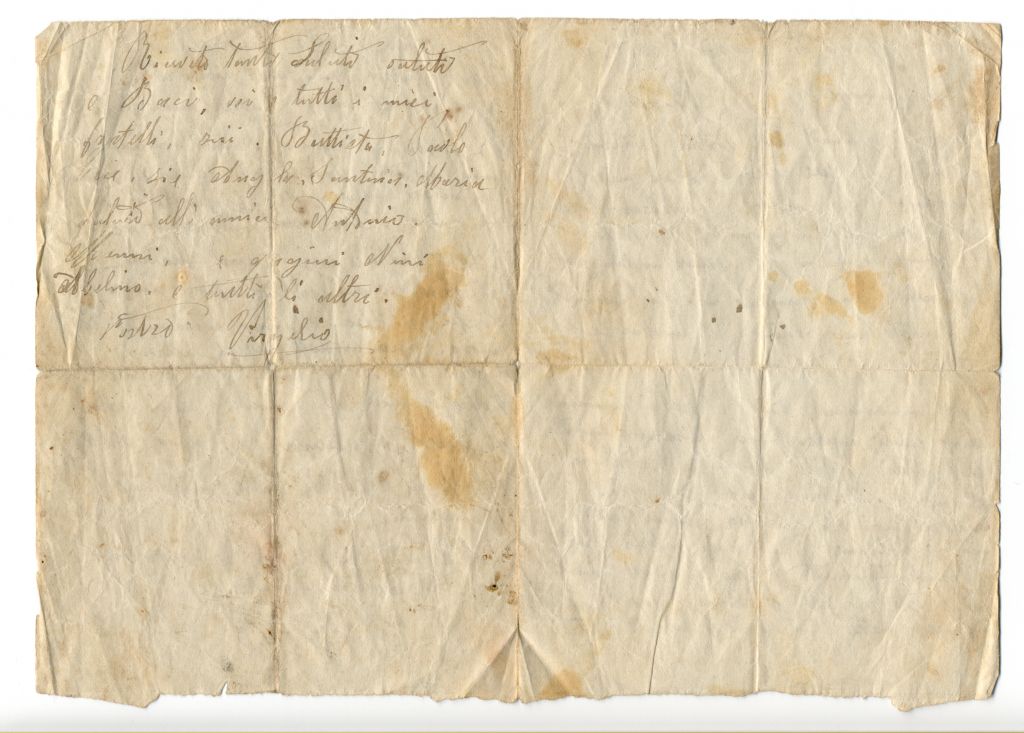 Ricevete tanti Saluti
e Baci, voi e tutti i miei
fratelli, zii. Battista, Paolo
zie, zie Angela, Santina, Maria
saluti alli amici Antonio.
e cugini Nini
Abelino. e tutti li altri.
Vostro Virgilio